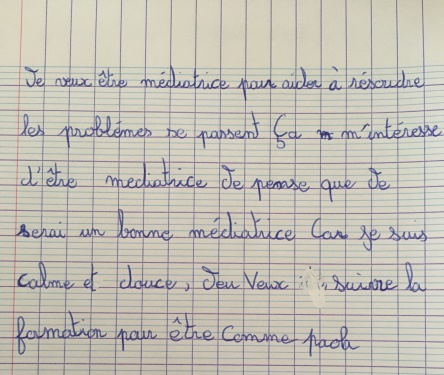 Je veux être médiatrice pour aider à résoudre
les problémes se passent Ça m'intéresse
d'être mediatrice Je pense que Je
serai un bonne médiatrice Car je suis
calme et douce, Jeu Veux suivre la
formation pour être Comme paola